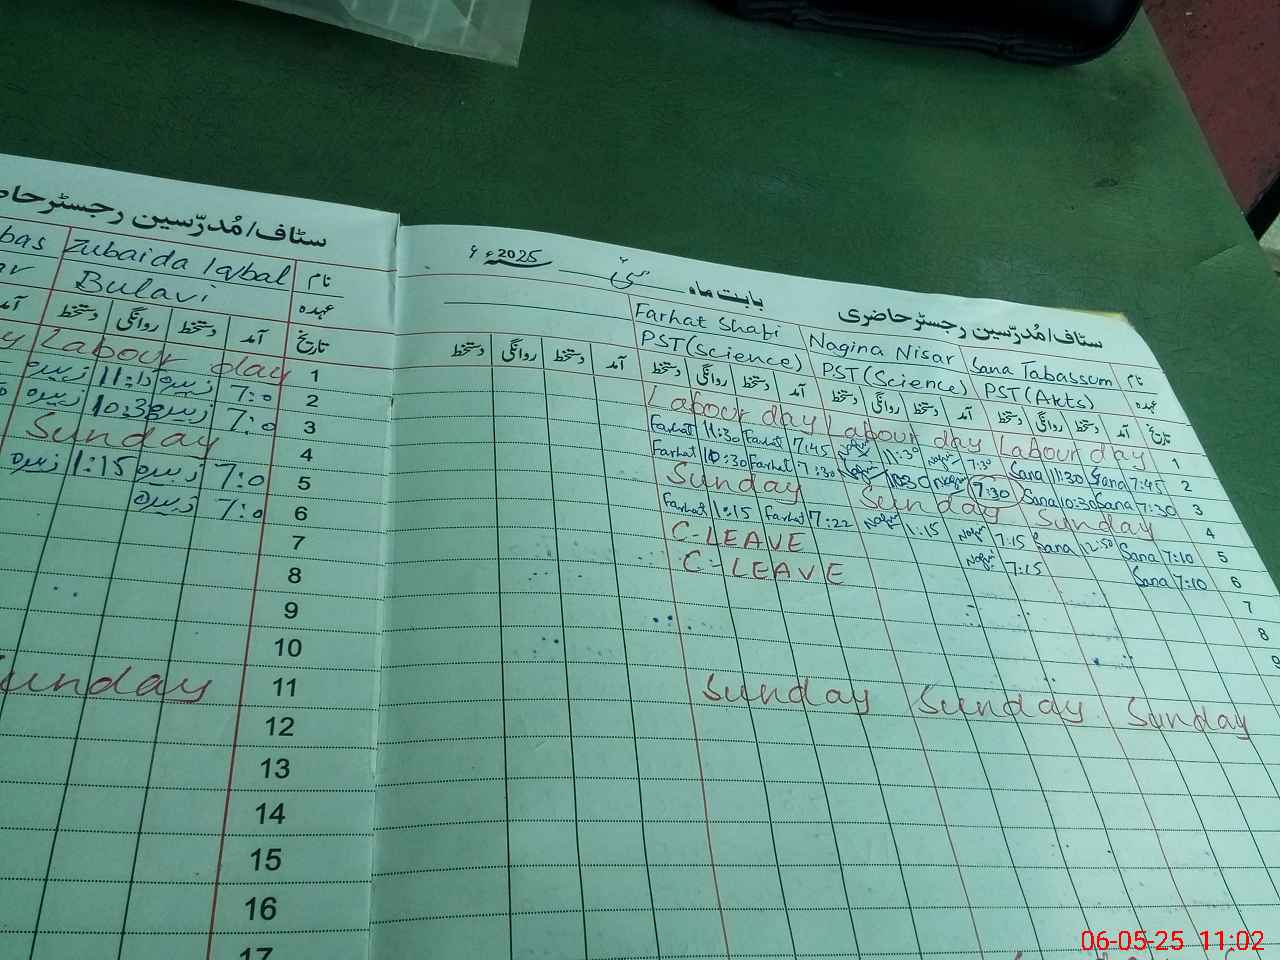 سٹاف/مُدرّسین رجسٹر حاضری بابت ماہ مئی 2025ء
نام Sana Tabassum Nagina Nisar Farhat Shafi
عہدہ PST(Arts) PST(Science) PST(Science)
تاریخ آمد دستخط روانگی دستخط آمد دستخط روانگی دستخط آمد دستخط روانگی دستخط آمد دستخط روانگی دستخط
1 Labour day Labour day Labour day
2 7:45 Sana 11:30 Sana 7:30 11:30 7:45 Farhat 11:30 Farhat
3 7:30 Sana 10:30 Sana 7:30 10:30 7:30 Farhat 10:30 Farhat
4 Sunday Sunday Sunday
5 7:10 Sana 12:50 Sana 7:15 1:15 7:22 Farhat 1:15 Farhat
6 7:10 Sana 7:15 C-LEAVE
7 C-LEAVE
8
9
Sunday Sunday Sunday
سٹاف/مُدرّسین رجسٹر
نام Zubaida Iqbal bas
عہدہ Bulavi
تاریخ آمد دستخط روانگی دستخط آمد
1 Labour day
2 7:0 زبیدہ 11:15 زبیدہ
3 7:0 زبیدہ 10:38 زبیدہ
4 Sunday
5 7:0 زبیدہ 1:15 زبیدہ
6 7:0 زبیدہ
7
8
9
10
11 Sunday
12
13
14
15
16
17
06-05-25 11:02